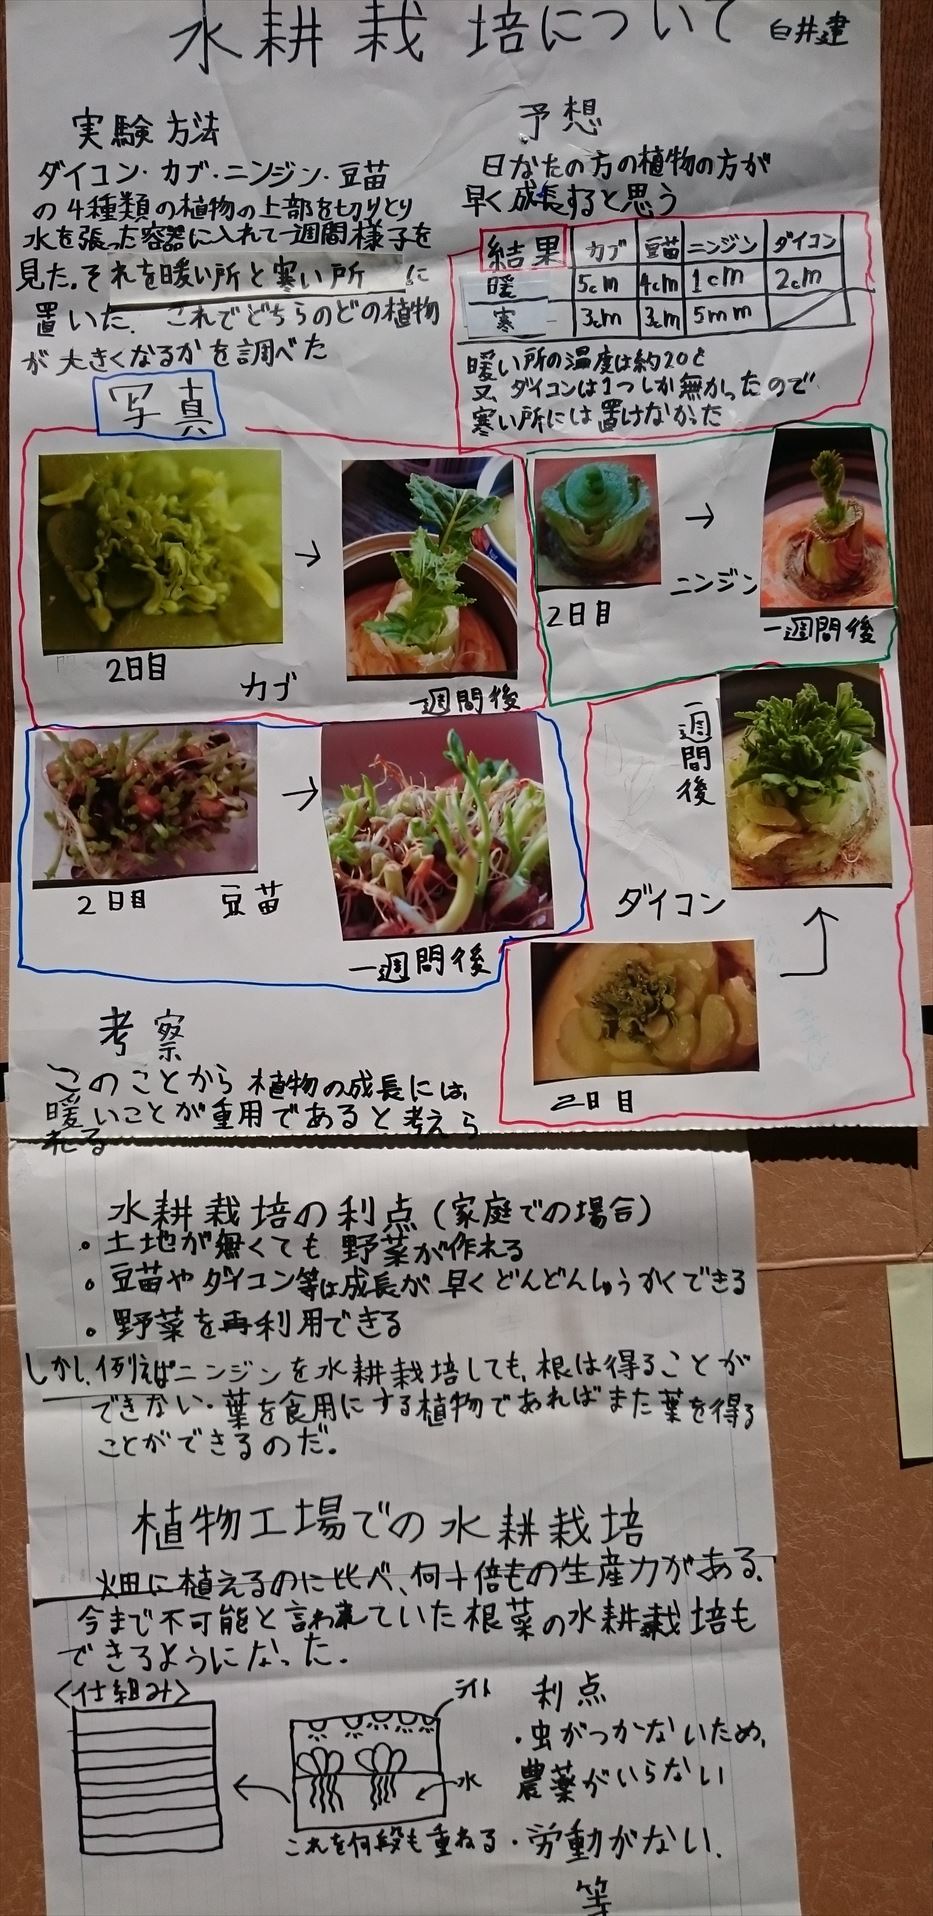 水耕栽培について 白井建
実験方法
ダイコン・カブ・ニンジン・豆苗
の4種類の植物の上部を切りとり
水を張った容器に入れて一週間様子を
見た。それを暖い所と寒い所に
置いた。これでどちらのどの植物
が大きくなるかを調べた
予想
日なたの方の植物の方が
早く成長すると思う
結果 カブ 豆苗 ニンジン ダイコン
暖 5cm 4cm 1cm 2cm
寒 3cm 3cm 5mm
暖い所の温度は約20℃
又、ダイコンは1つしか無かったので
寒い所には置けなかった
写真
2日目
カブ
一週間後
2日目
ニンジン
一週間後
2日目
豆苗
一週間後
一週間後
ダイコン
2日目
考察
このことから植物の成長には、
暖いことが重用であると考えら
れる
水耕栽培の利点(家庭での場合)
・土地が無くても野菜が作れる
・豆苗やダイコン等は成長が早くどんどんしゅうかくできる
・野菜を再利用できる
しかし、例えばニンジンを水耕栽培しても、根は得ることが
できない・葉を食用にする植物であればまた葉を得る
ことができるのだ。
植物工場での水耕栽培
畑に植えるのに比べ、何十倍もの生産力がある、
今まで不可能と言われていた根菜の水耕栽培も
できるようになった.
<仕組み>
ライト
水
これを何段も重ねる
利点
・虫がつかないため、
農薬がいらない
・労働がない.
等